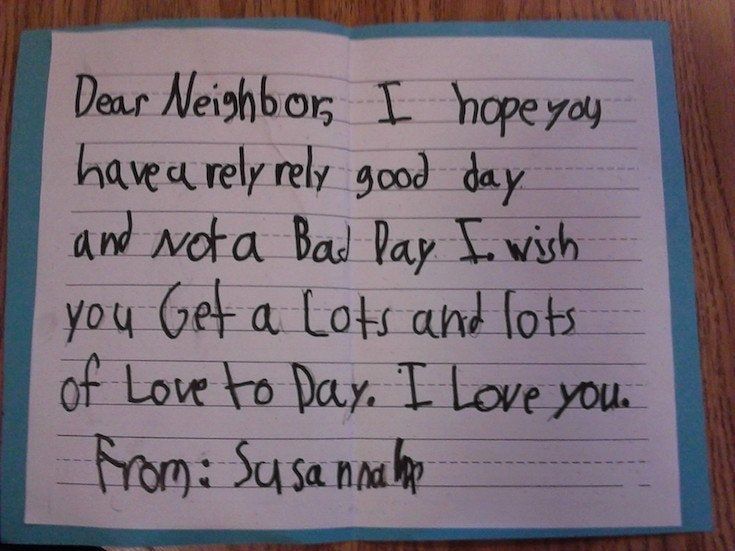 Dear Neighbors, I hope you
have a rely rely good day
and Not a Bad Day I. wish
you Get a Lots and lots
of Love to Day. I Love you.
From: Susannah